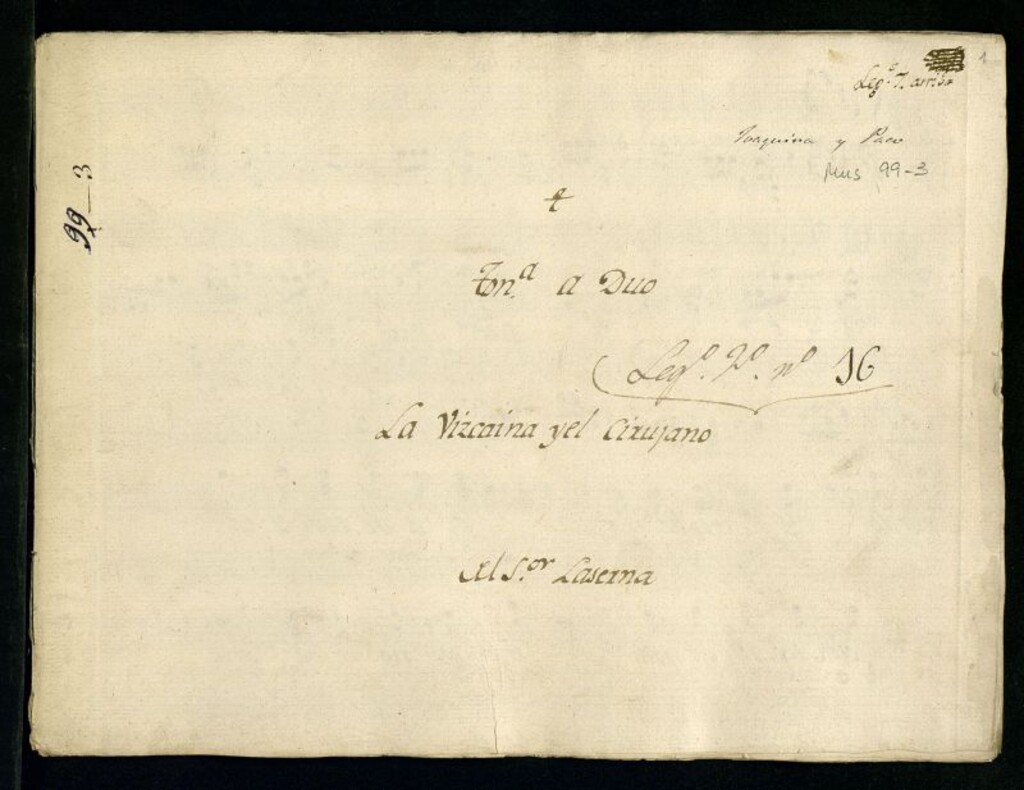 1
Leg.º 7. arriba
Joaquina y Paco
Mus 99-3
99-3
Ton.ª a Duo
Leg.º 2º. nº 16
La Vizcaina yel Cirujano
Del S.or Laserna